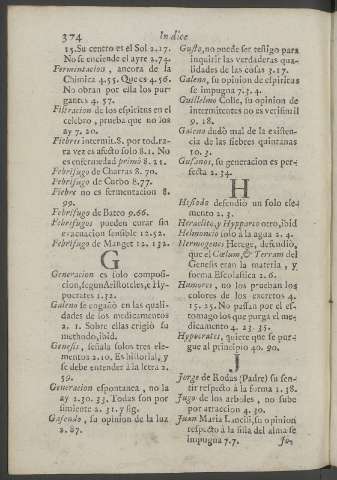 374 Indice
15. Su centro es el Sol 2. 17.
No se enciende el ayre 2. 74.
Fermentacion, ancora de la
Chimica 4. 55. Que es 4. 56.
No obran por ella los pur-
gantes 4. 57.
Filtracion de los espiritus en el
celebro, prueba que no los
ay 7. 20.
Fiebres intermit. 8. por tod. ra-
ra vez es afecto solo 8. 1. No
es enfermedad primò 8. 21.
Febrifugo de Charras 8. 70.
Febrifugo de Curbo 8. 77.
Fiebre no es fermentacion 8.
99.
Febrifugo de Bateo 9. 66.
Febrifugos pueden curar sin
evacuacion sensible 12. 52.
Febrifugo de Manget 12. 132.
G
Generacion es solo composi-
cion, segun Aristoteles, e Hy-
pocrates 1. 32.
Galeno se engañò en las quali-
dades de los medicamentos
2. 1. Sobre ellas erigiò su
methodo, ibid.
Genesis, señala solos tres ele-
mentos 2. 10. Es historial, y
se debe entender à la letra 2.
50.
Generacion espontanea, no la
ay 2. 30. 33. Todas son por
simiente 2. 31. y sig.
Gasendo, su opinion de la luz
2. 87.
Gusto, no puede ser testigo para
inquirir las verdaderas qua-
lidades de las cosas 3. 17.
Galeno, su opinion de espiritus
se impugna 7. 3. 4.
Guillelmo Cole, su opinion de
intermitentes no es verisimil
9. 18.
Galeno dudò mal de la existen-
cia de las fiebres quintanas
10. 3.
Gusanos, su generacion es per-
fecta 2. 34.
H
Hesiodo defendiò un solo ele-
mento 2. 3.
Heraclito, y Hypparco otro, ibid
Helmoncio solo à la agua 2. 4.
Hermogenes Herege, defendiò,
que el Cœlum, & Terram del
Genesis eran la materia, y
forma Escolastica 2. 6.
Humores, no los prueban los
colores de los excretos 4.
15. 25. No passan por el es-
tomago los que purga el me-
dicamento 4. 23. 35.
Hypocrates, quiere que se pur-
gue al principio 40. 90.
J
Jorge de Rodas (Padre) su sen-
tir respecto à la forma 1. 38.
Jugo de los arboles, no sube
por atraccion 4. 30.
Juan Maria Lancisi, su opinion
respecto à la silla del alma se
impugna 7. 7.